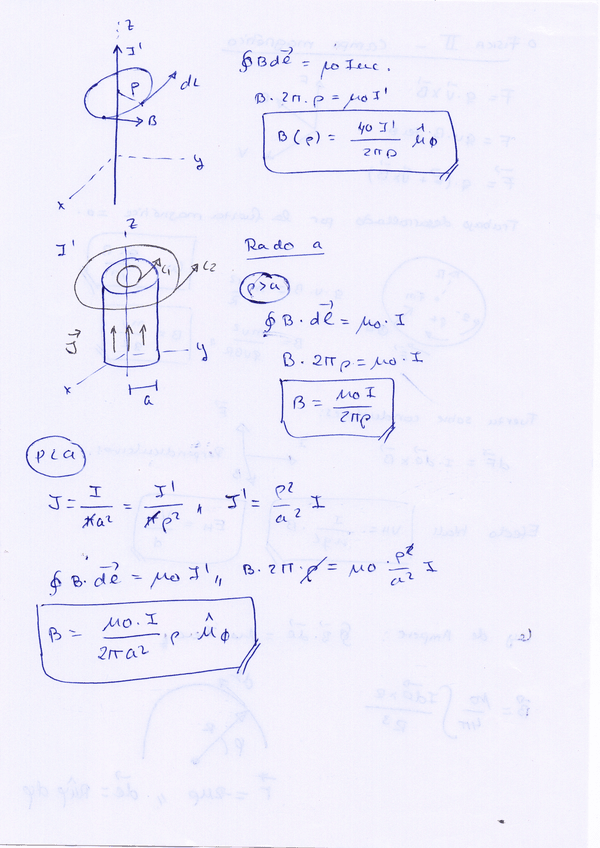 z
I'
ρ
dl
B
y
x
∮Bdl⃗ = μo Ienc.
B · 2π · ρ = μo I'
B(ρ) = μo I' / 2πρ ûφ
z
I'
C1
C2
J⃗
y
x
a
Rado a
ρ>a
∮ B · dl⃗ = μo · I
B · 2πρ = μo · I
B = μo I / 2πρ
ρ<a
J = I / πa² = I' / πρ² ,, I' = ρ² / a² I
∮ B · dl⃗ = μo I' ,, B · 2π · ρ = μo · ρ² / a² I
B = μo · I / 2πa² · ρ · ûφ